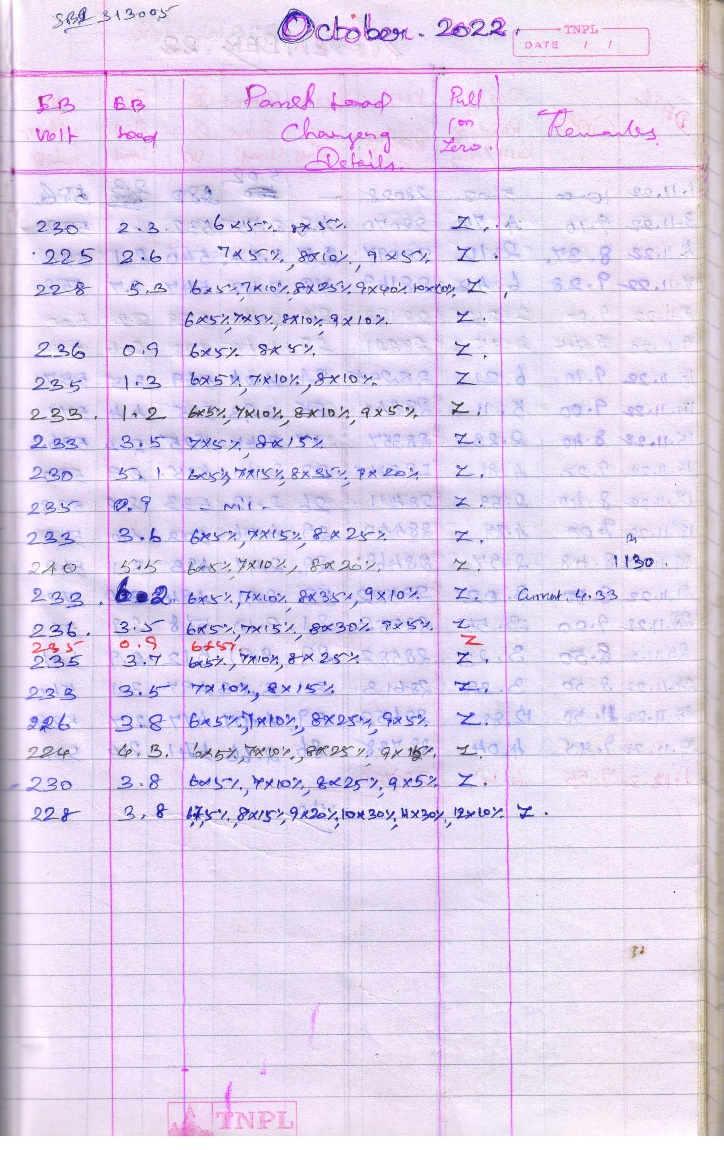 SBI 313005
October. 2022.
TNPL
DATE / /
EB Volt EB Load Panel Load Changeng Details. Full for Zero. Remarks.
230 2.3 6x5%, 8x5% Z.
225 2.6 7x5%, 8x10%, 9x5% Z.
228 5.3 6x5%, 7x10%, 8x25%, 9x40% 10x10% Z
6x5%, 7x5%, 8x10%, 9x10%. Z.
236 0.9 6x5% 8x5% Z.
235 1.3 6x5%, 7x10%, 8x10%. Z.
233. 1.2 6x5%, 7x10%, 8x10%, 9x5% Z.
233 3.5 7x5%, 8x15% Z.
230 5.1 6x5%, 7x15%, 8x35%, 9x20% Z.
235 0.9 - Nil - Z.
233 3.6 6x5%, 7x15%, 8x25% Z.
240 5.5 6x5%, 7x10%, 8x20%. Z. 1130.
233. 6.2 6x5%, 7x10%, 8x35%, 9x10% Z. 4.33
236. 3.5 6x5%, 7x15%, 8x30% 9x5% Z.
235 0.9 6x5% Z
235 3.7 6x5%, 7x10%, 8x25% Z.
233 3.5 7x10%, 8x15% Z.
226 3.8 6x5%, 7x10%, 8x25%, 9x5% Z.
224 4.3. 6x5%, 7x10%, 8x25%, 9x15% Z.
230 3.8 6x5%, 7x10%, 8x25%, 9x5% Z.
228 3.8 5%, 8x15%, 9x20%, 10x30%, 11x30%, 12x10% Z.
TNPL